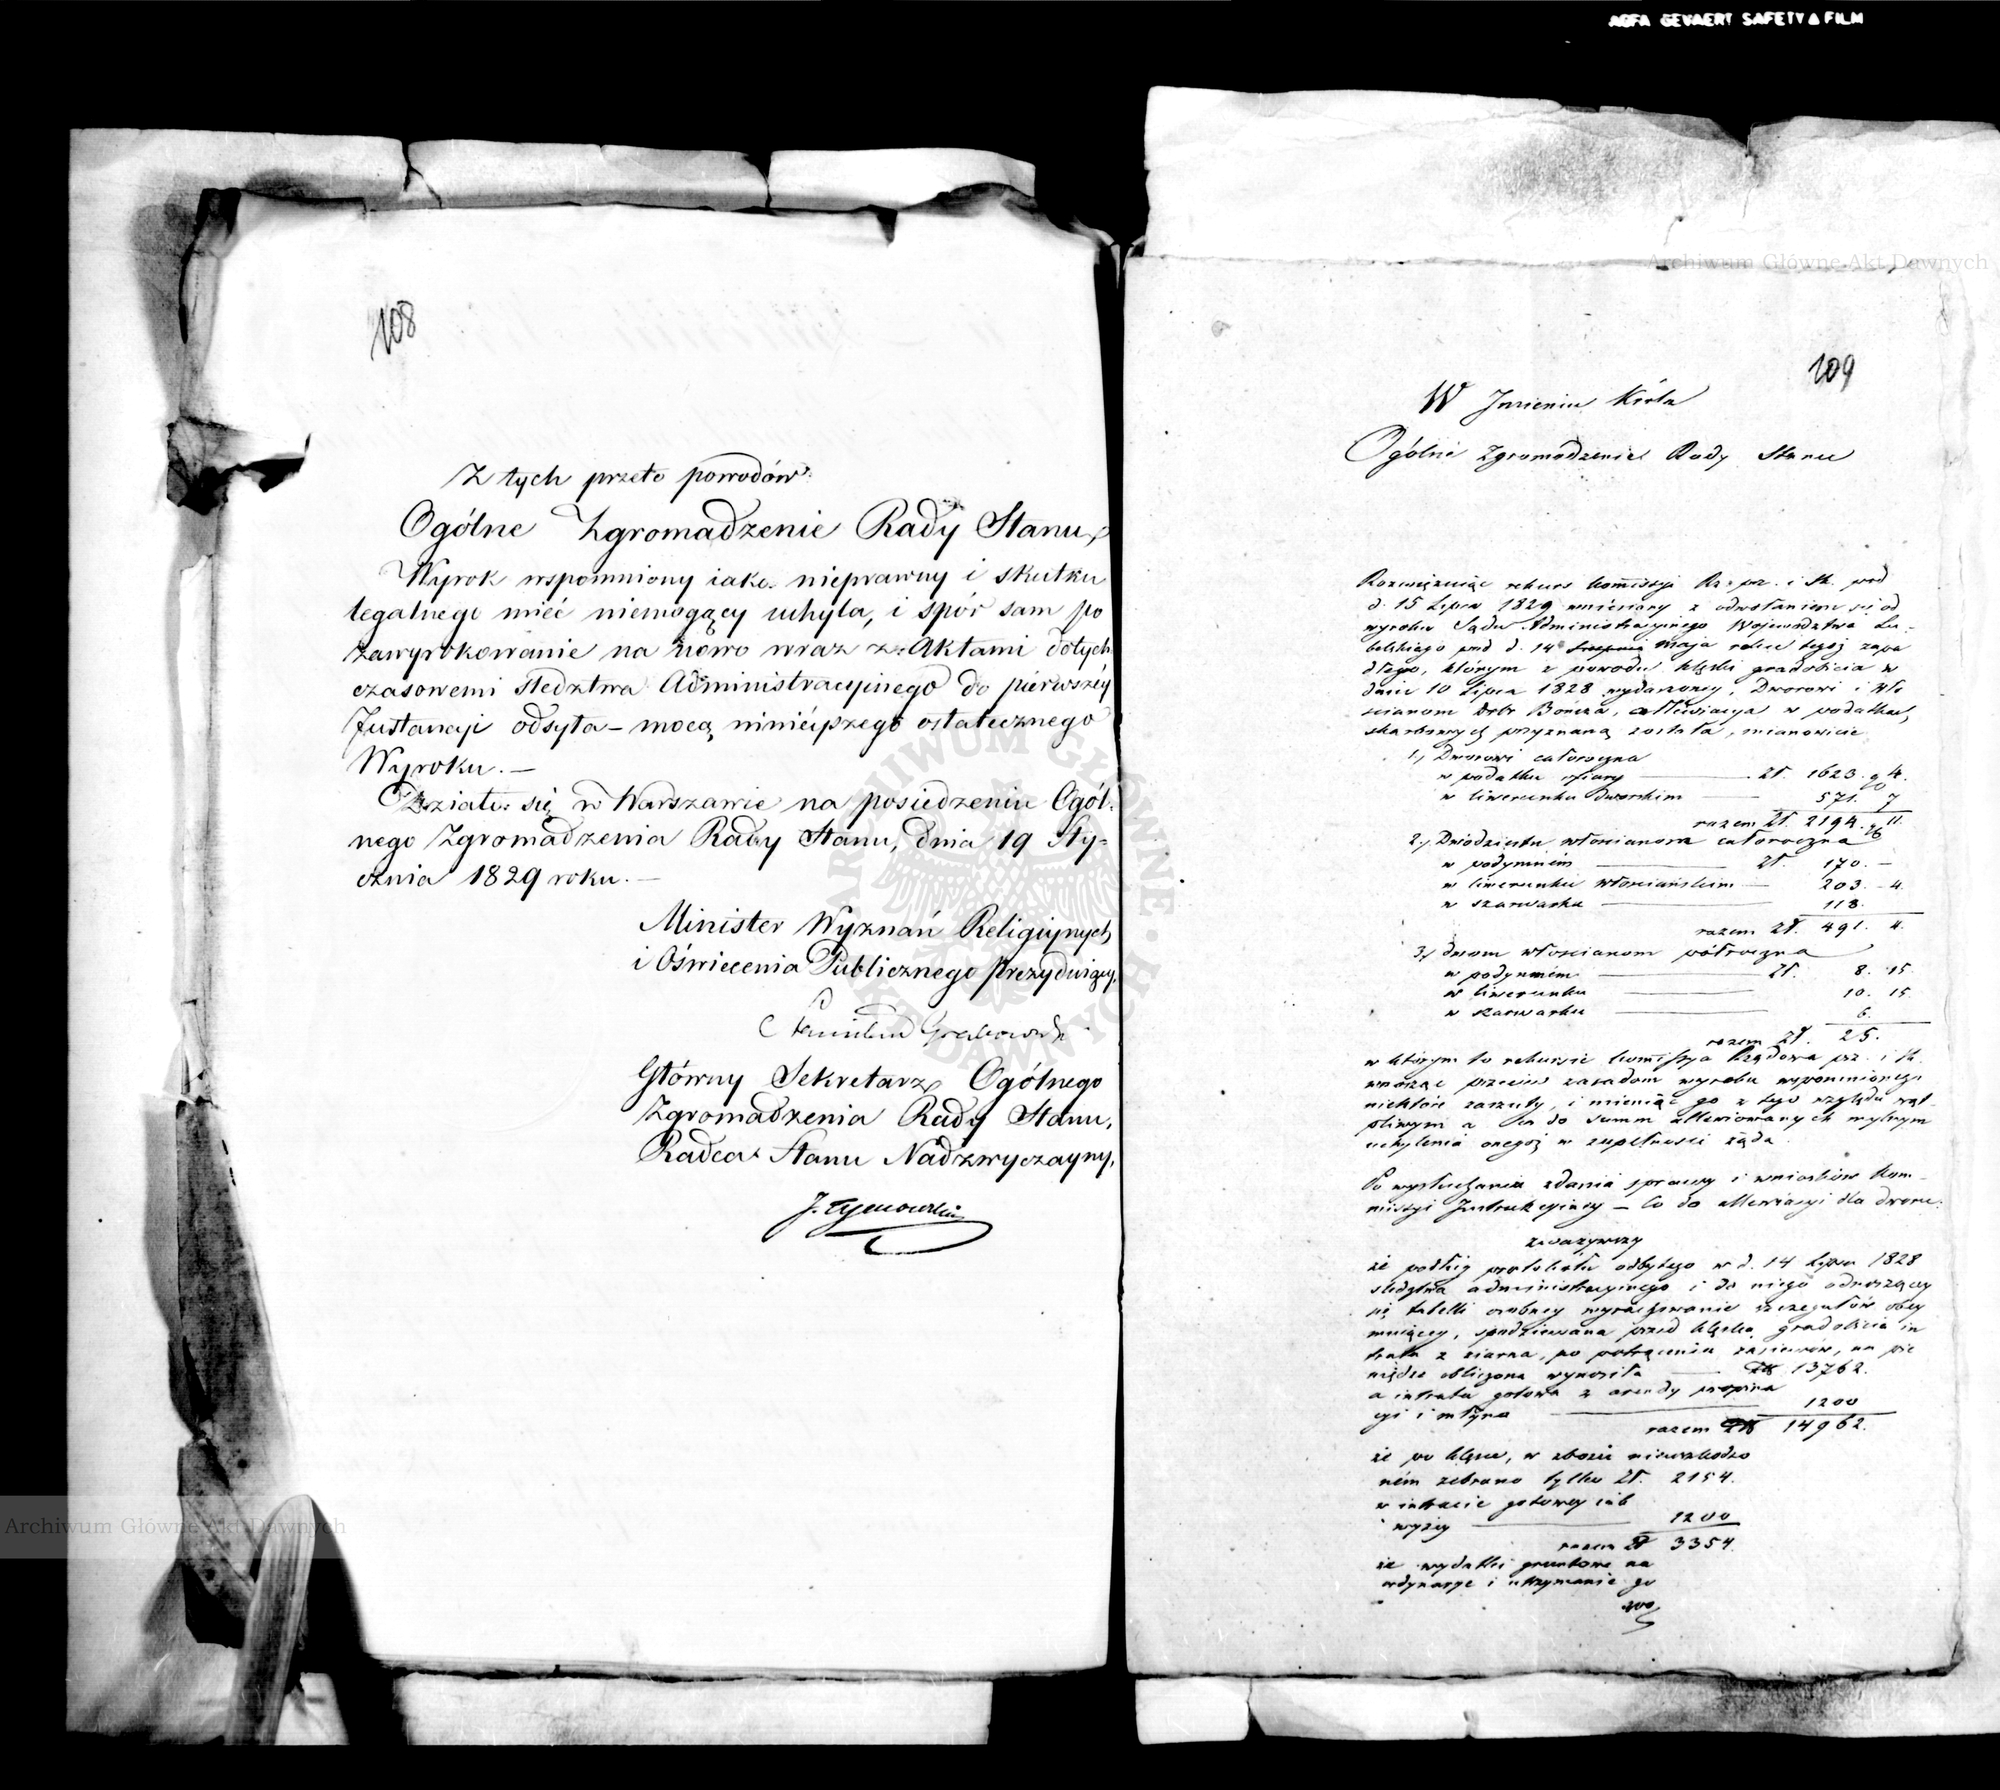 AGFA GEVAERT SAFETY FILM
108
Z tych przeto powodów:
Ogólne Zgromadzenie Rady Stanu,
Wyrok wspomniony iako nieprawny i skutku
legalnego mieć niemogący uchyla, i spór sam po
zawyrokowanie na nowo wraz z Aktami dotych
czasowemi śledztwa Administracyjnego do pierwszéy
Instancji odsyła – mocą niniéyszego ostatecznego
Wyroku. –
Działo się w Warszawie na posiedzeniu Ogól-
nego Zgromadzenia Rady Stanu, dnia 19 Sty-
cznia 1829 roku. –
Minister Wyznań Religiynych
i Oświecenia Publicznego Prezyduiący,
Stanisław Grabowski
Główny Sekretarz Ogólnego
Zgromadzenia Rady Stanu,
Radca Stanu Nadzwyczayny,
J. Tymowski
Archiwum Główne Akt Dawnych
ARCHIWUM GŁÓWNE AKT DAWNYCH
Archiwum Główne Akt Dawnych
109
W Imieniu Króla
Ogólne Zgromadzenie Rady Stanu
Rozwiązuiąc rekurs Kommissyi Rz. prz. i sk. pod
d. 15 Lipca 1829 wniesiony z odwołaniem się od
wyroku Sądu Administracyjnego Województwa Lu-
belskiego pod d. 14 maja roku tegoż zapa
dłego, którym z powodu klęski gradobicia w
dniu 10 Lipca 1828 wydarzoney, Dworowi i Wło
ścianom Dóbr Bończa, allewiacya w podatkach
skarbowych przyznaną została, mianowicie
1.) Dworowi całoroczna
w podatku ofiary — zł. 1623. 4.
w liwerunku dworskim — 571. 7
razem Zł. 2194. 11.
2.) Dwódziestu włościanom całoroczna
w podymném — zł. 170. –
w liwerunku włościańskim — 203. – 4.
w szarwarku — 118.
razem Zł. 491. 4.
3.) dwom włościanom półroczna
w podymném — zł. 8. 15.
w liwerunku — 10. 15
w szarwarku — 6.
razem zł. 25.
w którym to rekursie Kommissya Rządowa prz. i sk.
wnosząc przeciw zasadom wyroku wspomnionego
niektóre zarzuty, i mieniąc go z tego względu wąt-
pliwym a co do summ allewiowanych mylnym
uchylenia onegoż w zupełności żąda.
Po wysłuchaniu zdania sprawy i wniosków Kom-
missyi Instrukcyiney – Co do allewiacyi dla dworu:
zważywszy
że podług protokółu odbytego w d. 14 Lipca 1828
śledztwa administracyjnego i do niego odnoszącey
się tabelli osobney wyrachowanie szczegółów obey
muiącey, spodziewana przed klęską gradobicia in
trata z ziarna, po potrąceniu zasiewów, na pie
niądze obliczona wynosiła — zł 13762.
a intrata gotowa z arendy propina
cyi i młyna — 1200
razem zł 14962.
że po klęsce, w zbożu nieuszkodzo
ném zebrano tylko Zł. 2154.
w intracie gotowey iak
wyżey — 1200
razem zł 3354.
że wydatki gruntowe na
ordynarye i utrzymanie go